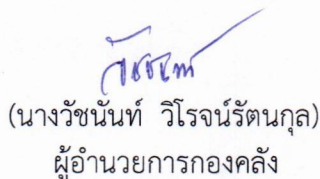 (นางวัชนันท์ วิโรจน์รัตนกุล)
ผู้อำนวยการกองคลัง